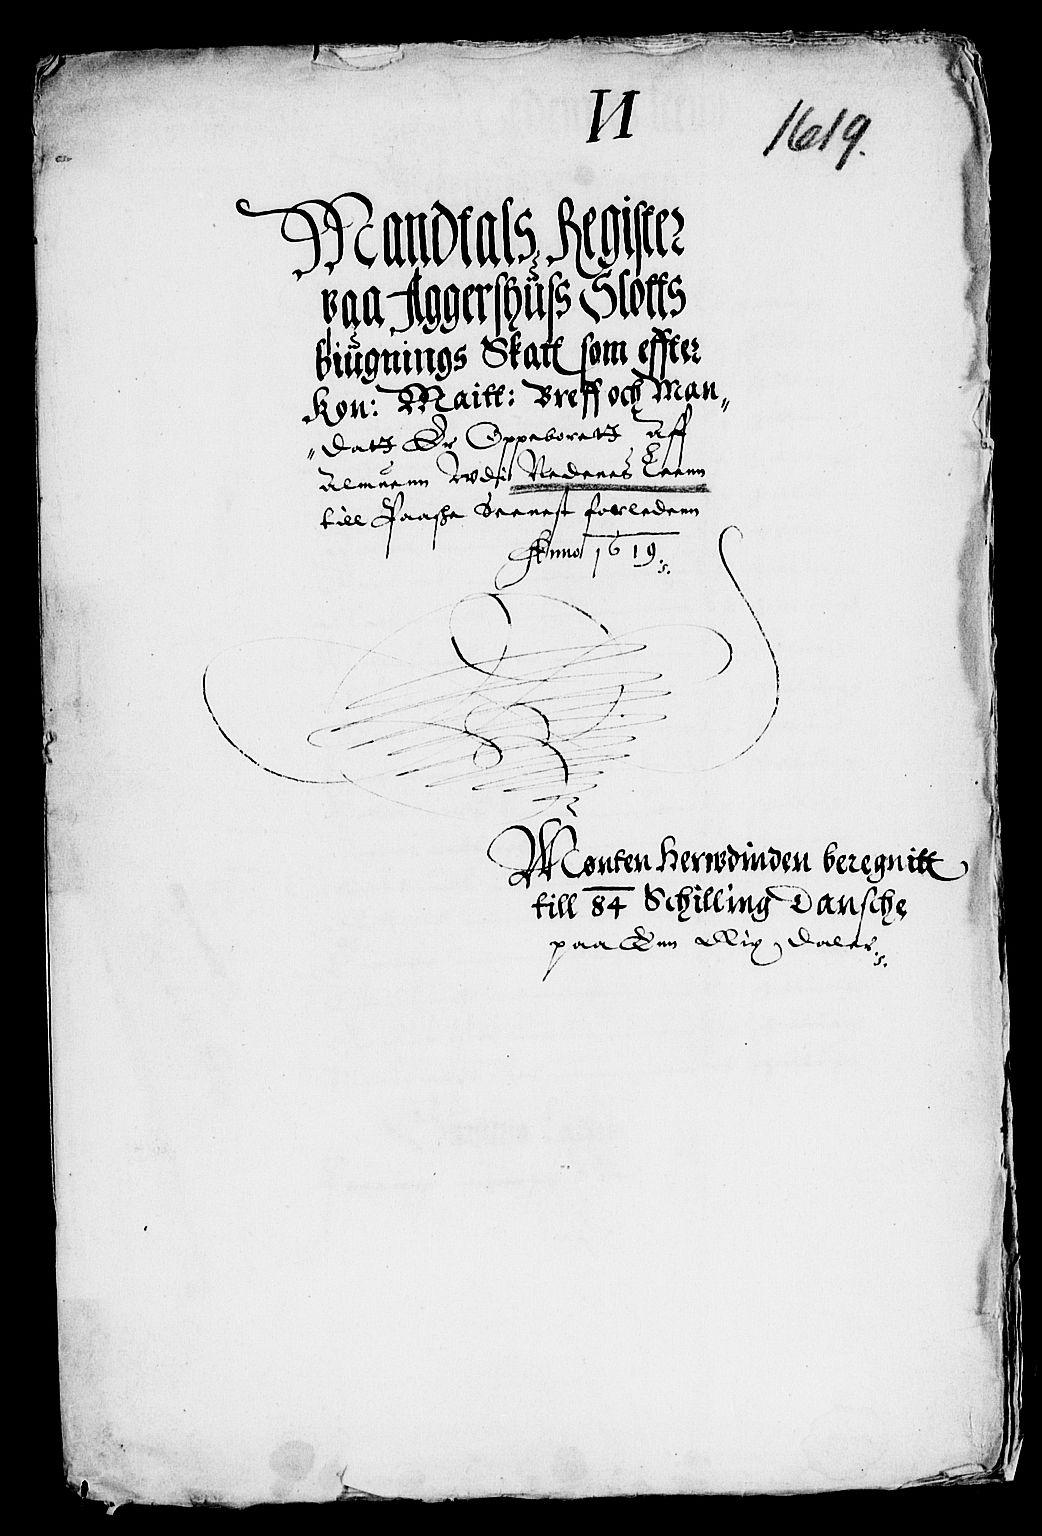 N
1619.
Mandtals Register
paa Aggershuss Slotts
Biugnings Skatt som effter
Kon: Maitt: Breff och Man„
„datt Er Oppeborett Aff
Almuenn Wdj Nedenes Leenn
till Paaske Seenest forledenn
Anno 1619
Mønten herwdinden beregnitt
till 84 Schilling Dansche
paa Enn Rix daler